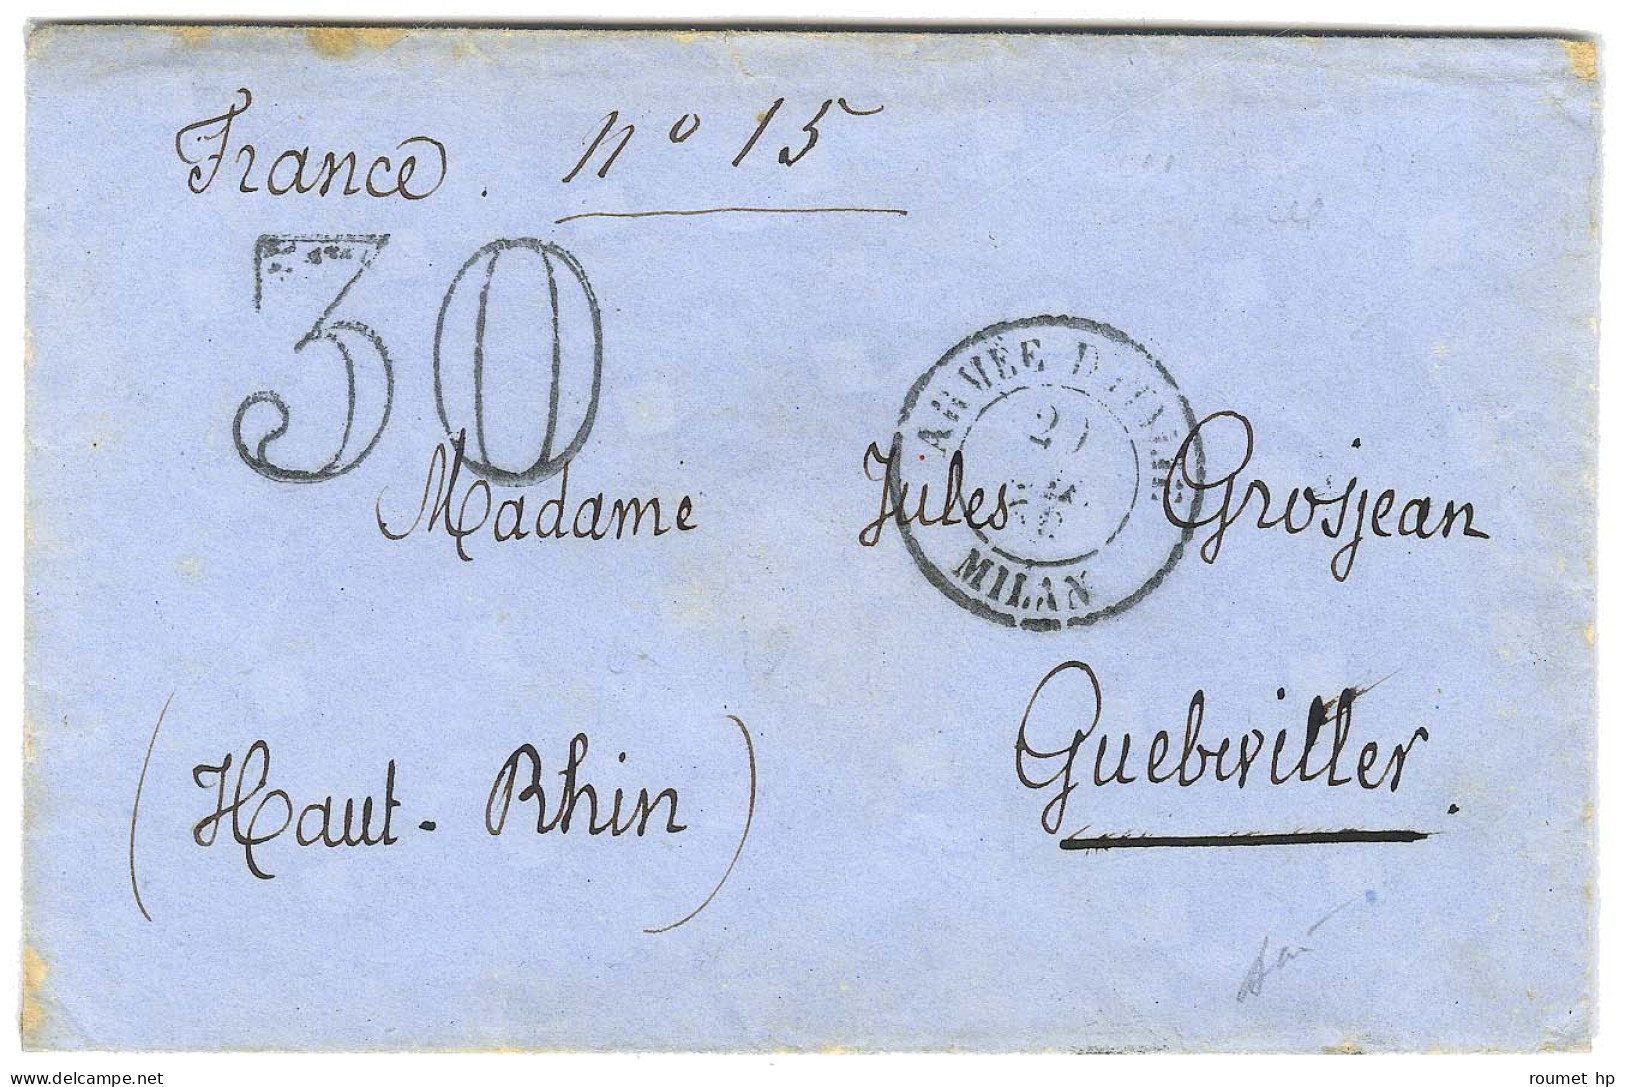 France. n° 15
30
ARMÉE D'ITALIE
MILAN
Madame Jules Grosjean
Guebwiller.
(Haut-Rhin)
delcampe.net
roumet hp